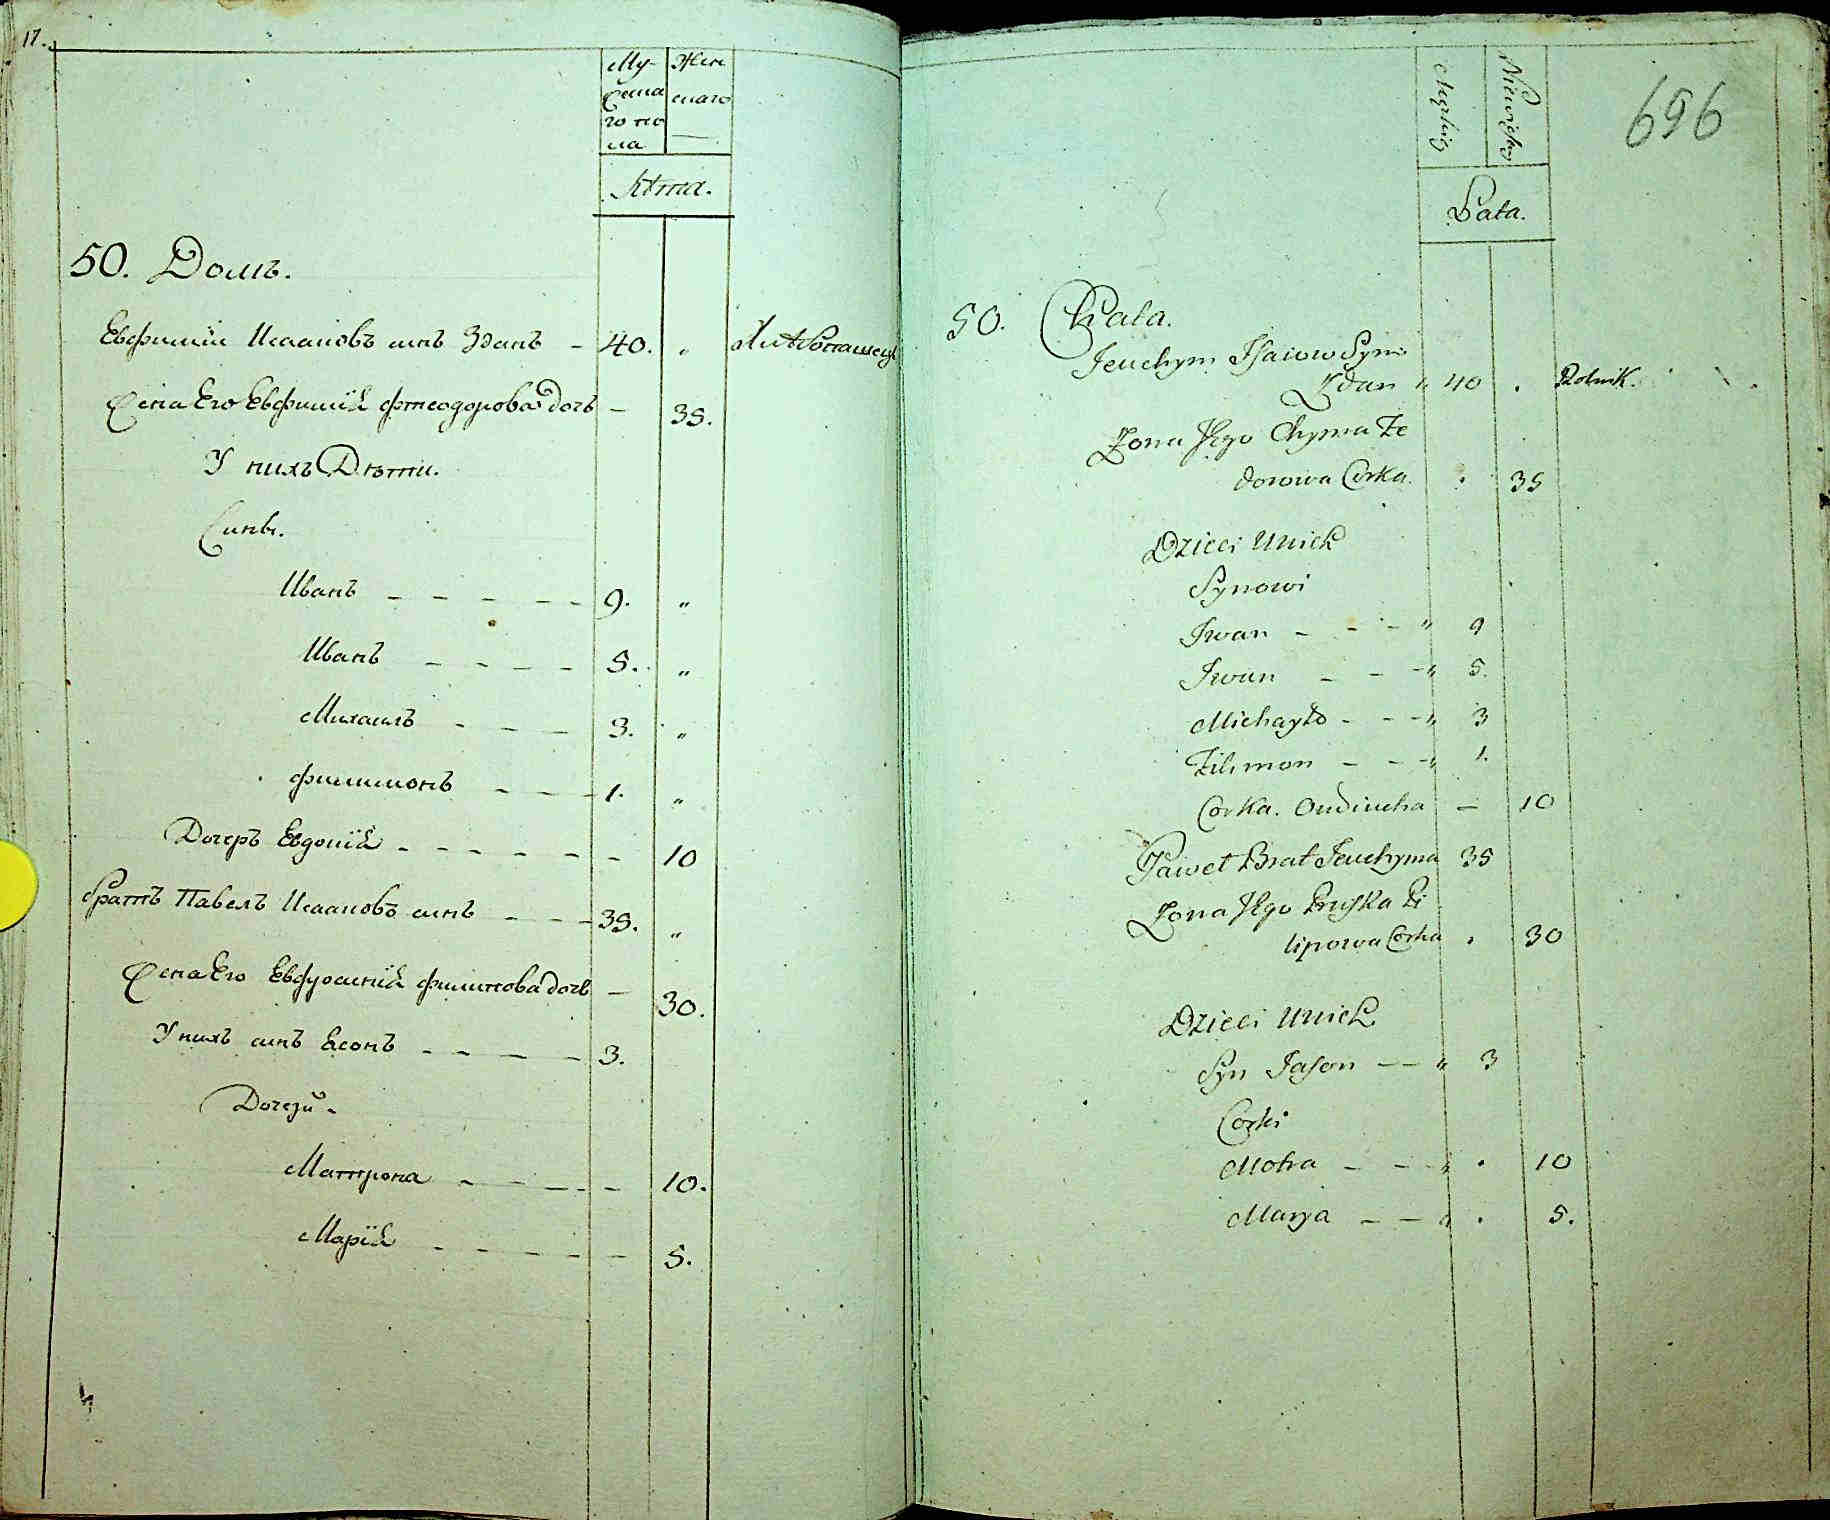 17.
Му-
жеска
го по
ла
Жен
скаго
Лѣта.
50. Домъ.
Евфимій Исааковъ синъ Зданъ - 40. „ Хлѣбопашецъ
Жена Его Евфимія Фтеодорова дочь - 35.
У нихъ Дѣти.
Сины.
Иванъ - - - - - 9. „
Иванъ - - - - 5. „
Михаилъ - - - - 3. „
Филимонъ - - - 1. „
Дочеръ Евдокія - - - - - - 10
Братъ Павелъ Исааковъ синъ - - - 35. „
Жена Его Евфросинія Филипова дочь - 30.
У нихъ синъ Ясонъ - - - - 3.
Дочери.
Матрона - - - - - 10.
Марія - - - - - 5.
Męzkiej
Niewieskiej
696
Lata.
50. Chata.
Jeuchym Isaiow Syn
Zdan „ 40 . Rolnik.
Zona Jego Chyma Fe
dorowa Corka. . 35
Dzieci Unich
Synowi
Iwan - - - „ 9
Iwan - - - „ 5.
Michayło - - - „ 3
Filimon - - - „ 1.
Corka. Oudiucha - 10
Paweł Brat Jeuchyma 35
Zona Jego Pruska Fi
lipowa Corka . 30
Dzieci Unich
Syn Jason - - „ 3
Corki
Motra - - - „ . 10
Marya - - „ . 5.